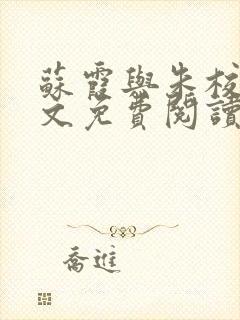 蘇霞與朱校
文免費閱讀
喬進